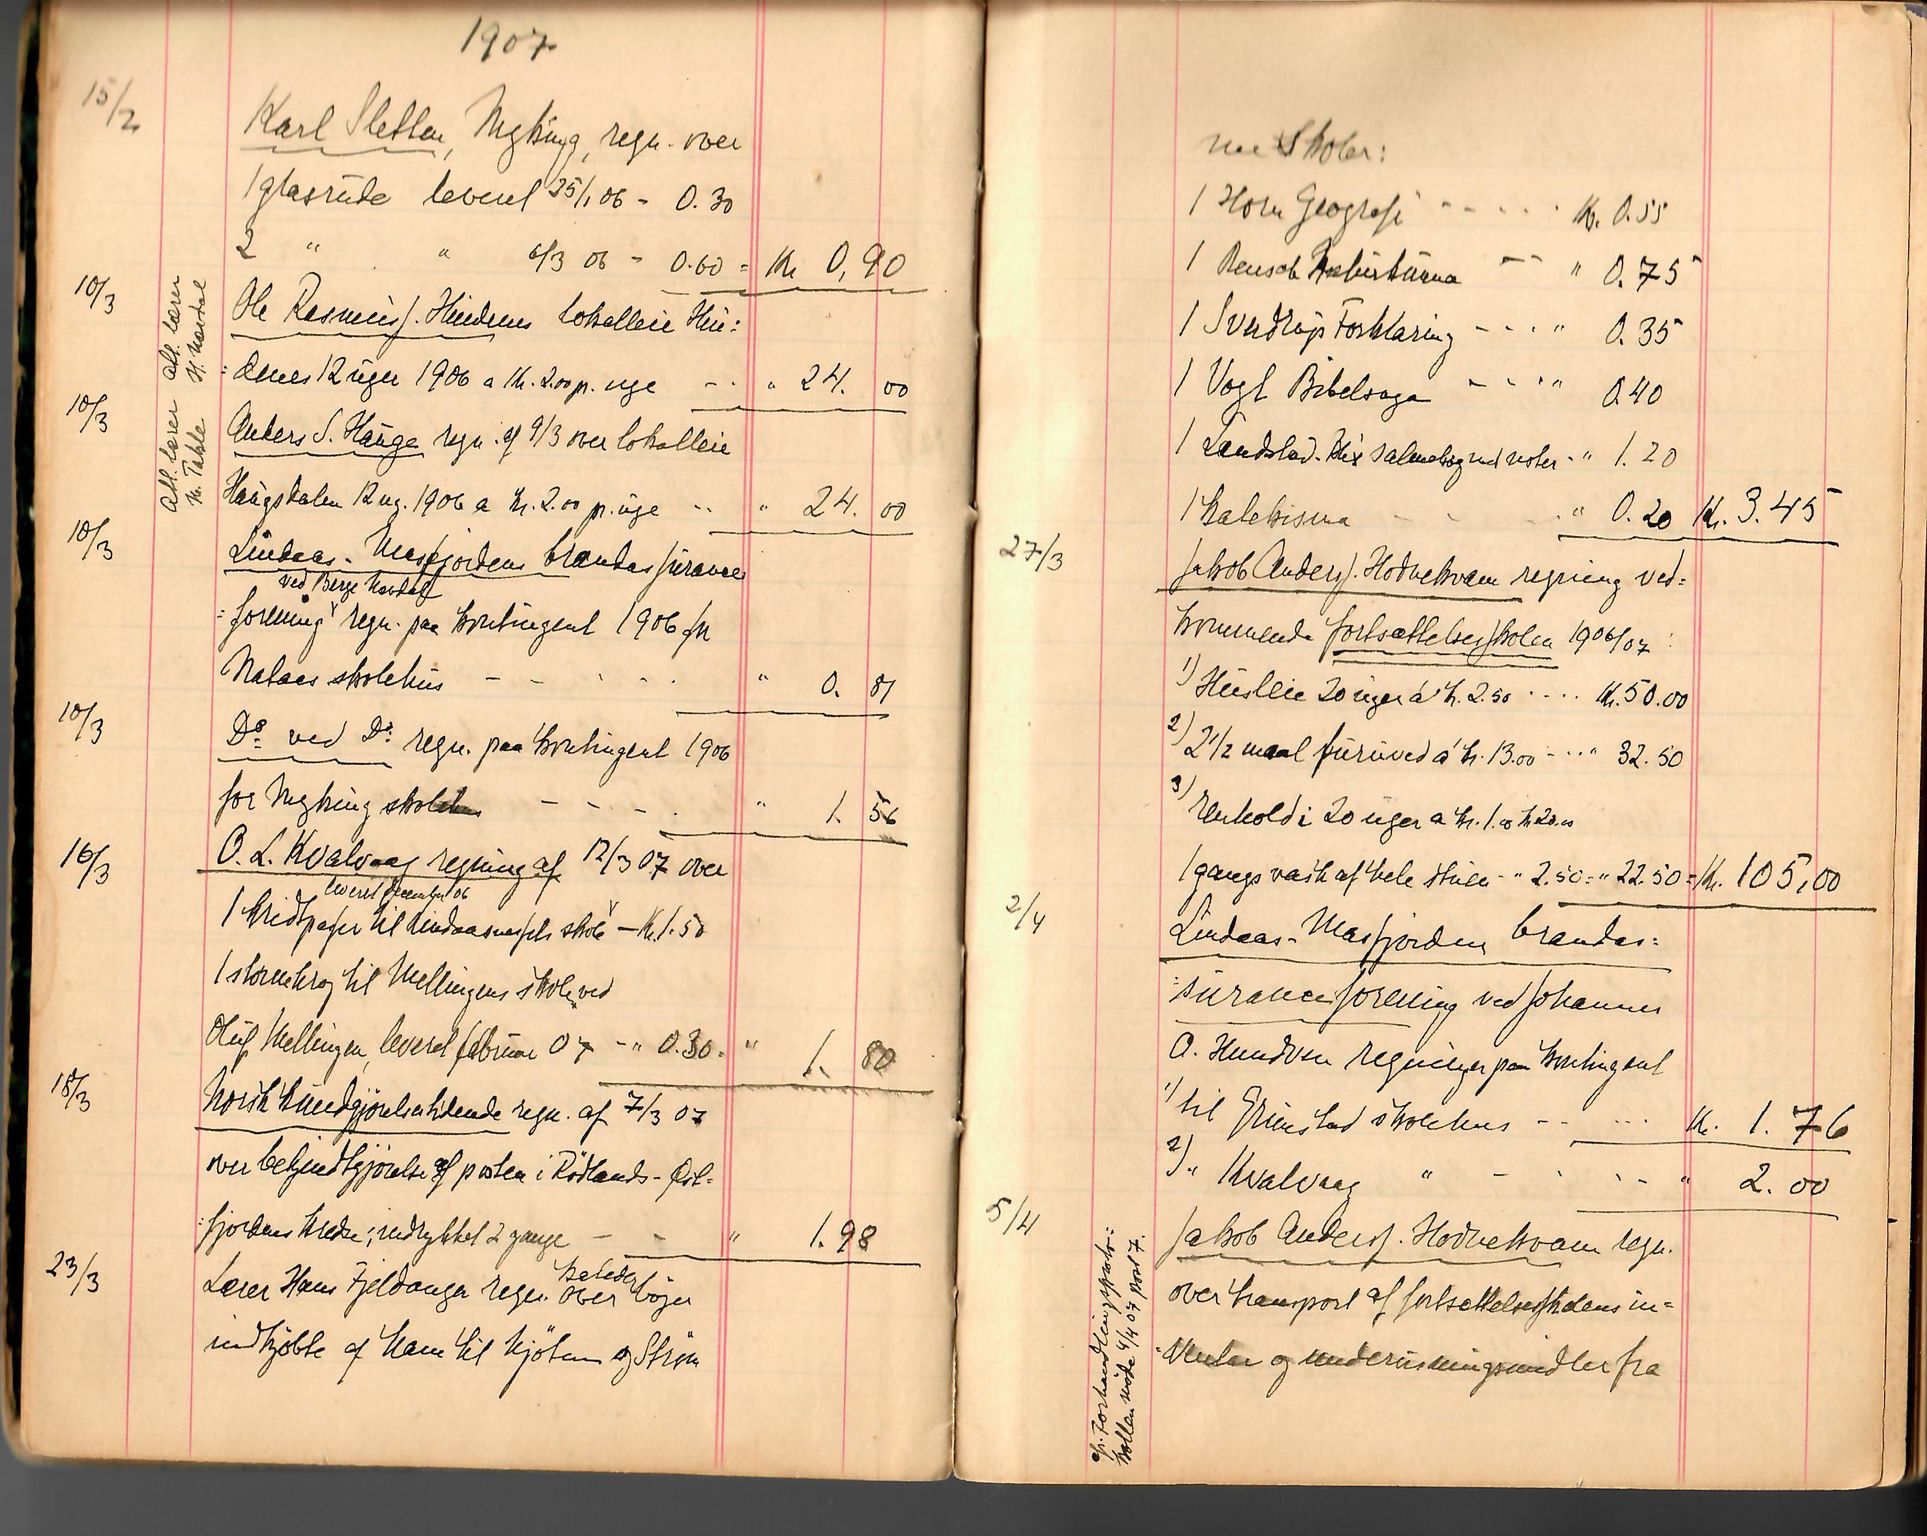 1907
15/2
Karl Sletten, Myking, regn. over
1 glasrude leveret 25/1 06 - 0.30
2 " " 6/3 06 - 0.60 = Kr 0,90
10/3
Att. lærer N. Nordal
Ole Rasmus f. Hundenes lokalleie Hun:
=denes 12 uger 1906 a Kr. 2.00 pr. uge - - " 24. 00
10/3
Att. lærer M. Takle
Anders S. Hauge regn. af 9/3 over lokalleie
Haugsdalen 12 ug. 1906 a kr. 2.00 pr. uge - - " 24. 00
10/3
Lindaas-Masfjordens brandassurance
ved Berge Nordal
=forening regn. paa kontingent 1906 for
Nataas skolehus - - - - - " 0. 81
10/3
Do ved Do regn. paa kontingent 1906
for Myking skolehus - - - - " 1. 56
16/3
O. L. Kvalvaag regning af 12/3 07 over
leveret december 06
1 kridtpasser til Lindaasnessets skole - Kr. 1.50
1 stormkrog til Mellingens skole, ved
Oluf Mellingen, leveret februar 07 - " 0.30 = " 1. 80
18/3
Norsk Kundgjørelsestidende regn. af 7/3 07
over bekjendtgjørelse af posten i Rödlands-Öst-
=fjordens kredse; indrykket 2 gange - - " 1. 98
23/3
Lærer Hans Fjeldanger regn. over bøger
indkjöbte af ham til Kjötnes og Ström
nes Skoler:
1 Horn Geografi - - - - - Kr. 0.55
1 Rensch Naturkunna - - " 0.75
1 Sverdrups Forklaring - - - " 0.35
1 Vogt Bibelsoga - - - " 0.40
1 Landstad. salmebog med noter - " 1.20
1 Katekisma - - - " 0.20 Kr. 3.45
27/3
Jakob Anders f. Hodnekvam regning ved=
kommende fortsættelsesskolen 1906/07:
1) Husleie 20 uger á kr. 2.50 - - - - Kr. 50.00
2) 2 1/2 maal furuved á kr. 13.00 - - - " 32.50
3) Renhold i 20 uger a kr. 1.00 kr 20.00
1 gangs vask af hele stuen - " 2.50 = " 22.50 = Kr. 105,00
2/4
Lindaas-Masfjordens brandas=
=suranceforening ved Johannes
O. Hundven regninger paa kontingent
1) til Grimstad skolehus - - - - - Kr. 1. 76
2) " Kvalvaag " - - - - " 2. 00
5/4
cfr. Forhandlingsproto=
kollen möde 4/4 07 post 7.
Jakob Anders f. Hodnekvam regn.
over transport af fortsættelsesskolens in=
=ventar og underviisningsmidler fra